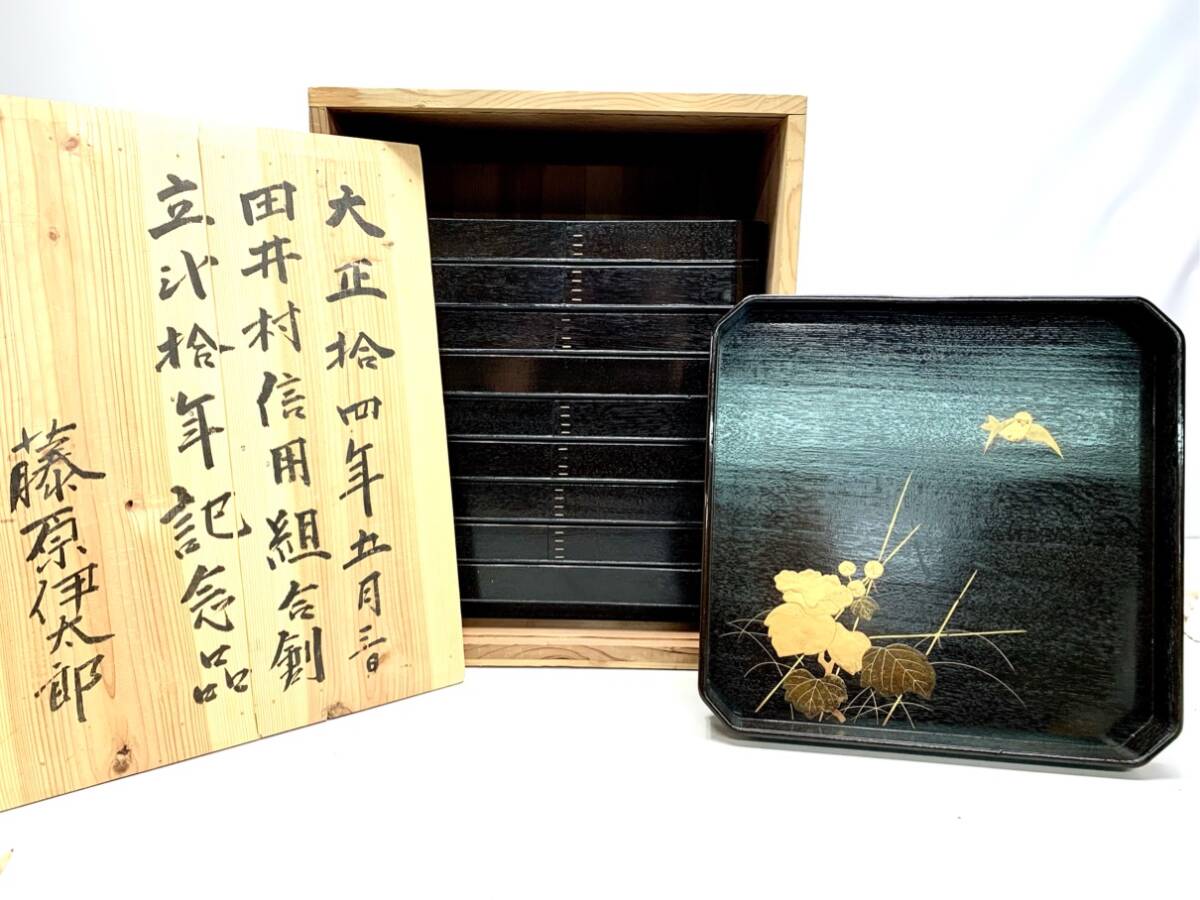 大正拾四年五月三日
田井村信用組合創
立弐拾年記念品
藤原伊太郎